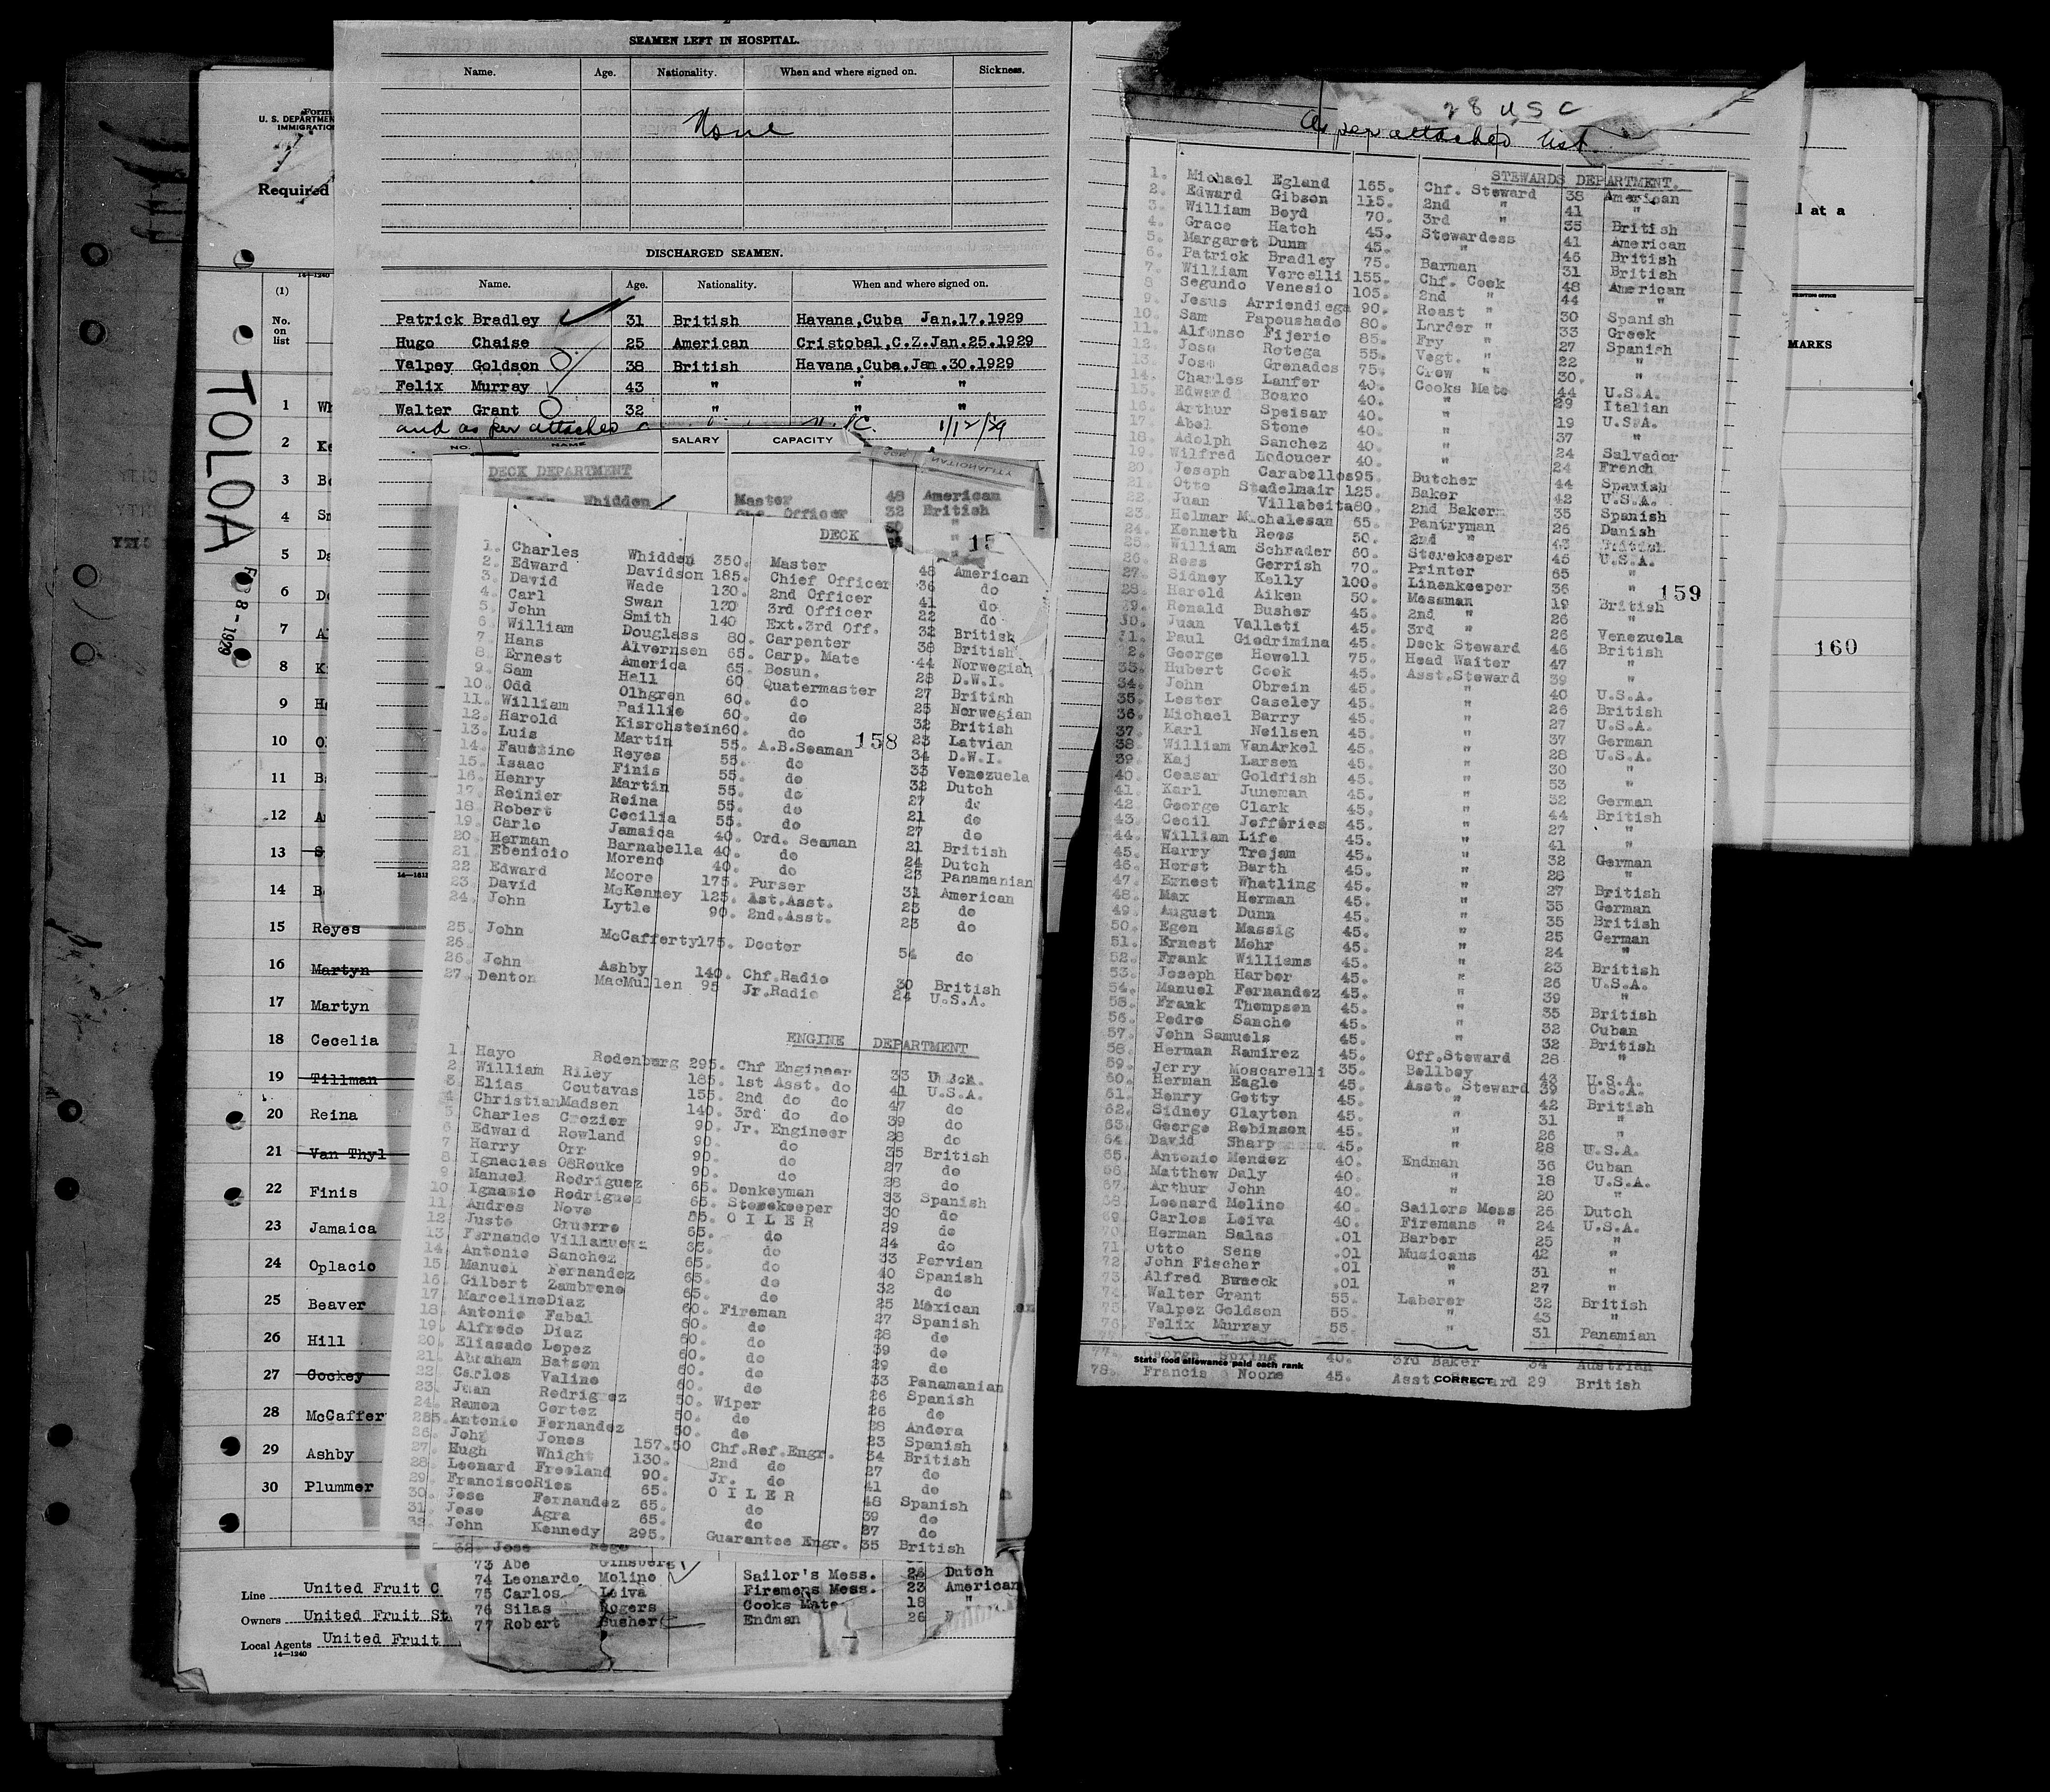 Form
U. S. DEPARTMEN
IMMIGRATIO
Required
14-1240
(1)
No.
on
list
TOLOA
F 8 - 1929
1 Wh
2 Ke
3 Bo
4 Sm
5 Da
6 Do
7 Al
8 Ki
9 Ha
10 O
11 Ba
12 A
13
14 B
15 Reyes
16 Martyn
17 Martyn
18 Cecelia
19 Tillman
20 Reina
21 Van Thyl
22 Finis
23 Jamaica
24 Oplacio
25 Beaver
26 Hill
27 Cockey
28 McCaffer
29 Ashby
30 Plummer
Line United Fruit C
Owners United Fruit St
Local Agents United Fruit
14-1240
SEAMEN LEFT IN HOSPITAL.
Name. Age. Nationality. When and where signed on. Sickness.
None
DISCHARGED SEAMEN.
Name. Age. Nationality. When and where signed on.
Patrick Bradley 31 British Havana,Cuba Jan.17.1929
Hugo Chaise 25 American Cristobal,C.Z.Jan.25.1929
Valpey Goldson 38 British Havana,Cuba.Jan.30.1929
Felix Murray 43 " " "
Walter Grant 32 " " "
and as per attached
NO. NAME SALARY CAPACITY NATIONALITY
DECK DEPARTMENT
Whidden Master 48 American
Chf. Officer 32 British
DECK 15
1. Charles Whidden 350. Master 48 American
2. Edward Davidson 185. Chief Officer 36 do
3. David Wade 130. 2nd Officer 41 do
4. Carl Swan 120 3rd Officer 22 do
5. John Smith 140 Ext.3rd Off. 32 British
6. William Douglass 80. Carpenter 38 British
7. Hans Alvernsen 65. Carp. Mate 44 Norwegian
8. Ernest America 65. Bosun. 28 D.W.I.
9. Sam Hall 60 Quatermaster 27 British
10. Odd Olhgren 60. do 25 Norwegian
11. William Paillie 60. do 32 British
12. Harold Kisrchstein60. do 23 Latvian
13. Luis Martin 55. A.B.Seaman 34 D.W.I.
158
14. Faustino Reyes 55. do 33 Venezuela
15. Isaac Finis 55. do 32 Dutch
16. Henry Martin 55. do 27 do
17. Reinier Reina 55. do 21 do
18 Robert Cecilia 55. do 27 do
19. Carlo Jamaica 40. Ord. Seaman 21 British
20. Herman Barnabella 40. do 24 Dutch
21. Ebenicio Moreno 40. do 23 Panamanian
22 Edward Moore 175. Purser 31 American
23. David McKenney 125. Ast.Asst. 23 do
24. John Lytle 90. 2nd.Asst. 23 do
25. John McCafferty175. Doctor 54 do
26.
26. John Ashby 140. Chf.Radio 30 British
27. Denton MacMullen 95 Jr.Radio 24 U.S.A.
ENGINE DEPARTMENT
1. Hayo Rodenberg 295. Chf Engineer 33
2. William Riley 185. 1st Asst. do 41 U.S.A.
3. Elias Coutavas 155. 2nd do do 47 do
4 ChristianMadsen 140. 3rd do do 39 do
5. Charles Crozier 90. Jr. Engineer 28 do
6 Edward Rowland 90. do 35 British
7 Harry Orr 90. do 27 do
8. Ignacias O&Rouke 90. do 28 do
9 Manuel Rodriguez 65. Donkeyman 33 Spanish
10 Ignasio Rodriguez 65. Storekeeper 30 do
11 Andres Nove 65. O I L E R 29 do
12 Juste Gruerre 65. do 24 do
13 Fernando Villanueva 65. do 33 Pervian
14. Antonio Sanchez 65. do 40 Spanish
15. Manuel Fernandez 65. do 32 do
16. Gilbert Zambreno 65. do 25 Mexican
17 MarcelinoDiaz 60. Fireman 27 Spanish
18. Antonio Fabal 60. do 28 do
19. Alfredo Diaz 60. do 39 do
20. Eliasado Lopez 60. do 29 do
21. Abraham Batson 60. do 33 Panamanian
22 Carlos Valino 60. do 26 Spanish
23. Juan Rodriguez 50. Wiper 26 do
24. Ramon Cortez 50. do 28 Andora
25.Antonio Fernandez 50. do 23 Spanish
26. John Jones 157.50 Chf.Ref.Engr. 34 British
27. Hugh Whight 130. 2nd do 27 do
28. Leonard Freeland 90. Jr. do 41 do
29. FranciscoRies 65. O I L E R 48 Spanish
30. Jose Fernandez 65. do 39 do
31. Jose Agra 65. do 27 do
32. John Kennedy 295. Guarantee Engr. 35 British
32. Jose
73 Abe Ginsberg
74 Leonardo Molino Sailor's Mess. 26 Dutch
75 Carlos Leiva Firemens Mess. 23 American
76 Silas Rogers Cooks Mate 18 "
77 Robert Busher Endman 26
28 U S C
As per attached list.
STEWARDS DEPARTMENT.
1. Michael Egland 165. Chf. Steward 38 American
2. Edward Gibson 115. 2nd " 41 "
3. William Boyd 70. 3rd " 35 British
4. Grace Hatch 45. Stewardess 41 American
5. Margaret Dunn 45. " 46 British
6. Patrick Bradley 75. Barman 31 British
7. William Vercelli 155. Chf. Cook 48 American
8 Segundo Venesio 105. 2nd " 44 "
9. Jesus Arriendiega 90. Roast " 30 Spanish
10. Sam Papoushado 80. Larder " 33 Greek
11. Alfonso Fijerio 85. Fry " 27 Spanish
12. Jose Rotega 55. Vegt. " 22 "
13. Jose Grenados 75. Crew " 30. "
14. Charles Lanfer 40. Cooks Mate 44 U.S.A.
15. Edward Boaro 40. " 29 Italian
16. Arthur Speisar 40. " 19 U.S.A.
17. Abel Stone 40. " 37 "
18. Adolph Sanchez 40. " 24 Salvador
19. Wilfred Ledoucer 40. " 24 French
20. Joseph Carabellos95. Butcher 44 Spanish
21. Otto Stadelmair 125. Baker 42 U.S.A.
22. Juan Villabeita80. 2nd Baker 35 Spanish
23. Helmar Michalesan 55. Pantryman 26 Danish
24. Kenneth Rees 50. 2nd " 43 British
25. William Schrader 60. Storekeeper 45 U.S.A.
26. Ross Gerrish 70. Printer 65 "
27. Sidney Kelly 100. Linenkeeper 36 "
159
28. Harold Aiken 50. Messman 19 British
29. Ronald Busher 45. 2nd " 26 "
30. Juan Valleti 45. 3rd " 26 Venezuela
31. Paul Giedrimina 45. Deck Steward 46 British
2. George Howell 75. Head Waiter 47 "
33. Hubert Cook 45. Asst.Steward 39 "
34. John Obrein 45. " 40 U.S.A.
35. Lester Caseley 45. " 26 British
36. Michael Barry 45. " 27 U.S.A.
37. Karl Neilsen 45. " 37 German
38. William VanArkel 45. " 28 U.S.A.
39. Kaj Larsen 45. " 30 "
40. Ceasar Goldfish 45. " 53 "
41. Karl Juneman 45. " 32 German
42. George Clark 45. " 44 British
43. Cecil Jefferies 45. " 27 "
44. William Life 45. " 41 "
45. Harry Trojam 45. " 32 German
46. Horst Barth 45. " 28 "
47. Ernest Whatling 45. " 27 British
48. Max Herman 45. " 35 German
49. August Dunn 45. " 35 British
50. Egon Massig 45. " 25 German
51. Ernest Mohr 45. " 24 "
52. Frank Williams 45. " 23 British
53. Joseph Harber 45. " 26 U.S.A.
54. Manuel Fernandez 45. " 39 "
55. Frank Thompson 45. " 35 British
56. Pedro Sancho 45. " 32 Cuban
57. John Samuels 45. " 32 British
58. Herman Ramirez 45. Off.Steward 28 "
59. Jerry Moscarelli 35. Bellboy 43 U.S.A.
60. Herman Eagle 45. Asst. Steward 39 U.S.A.
61. Henry Getty 45. " 42 British
62. Sidney Clayton 45. " 31 "
63. George Robinson 45. " 26 "
64. David Sharp 45. " 28 U.S.A.
65. Antonio Mendez 40. Endman 36 Cuban
66. Matthew Daly 40. " 18 U.S.A.
67. Arthur John 40. " 20 "
68. Leonard Molino 40. Sailors Mess 26 Dutch
69. Carlos Leiva 40. Firemans " 24 U.S.A.
70. Herman Salas .01 Barber 25 "
71. Otto Sens .01 Musicans 42 "
72 John Fischer .01 " 31 "
73. Alfred .01 " 27 "
74 Walter Grant 55. Laborer 32 British
75. Valpez Goldson 55. " 43 "
76. Felix Murray 55. " 31 Panamian
77. George Spring 40. 3rd Baker 34 Austrian
State food allowance paid each rank
CORRECT
78. Francis Noone 45. Asst. Steward 29 British
l at a
MARKS
160